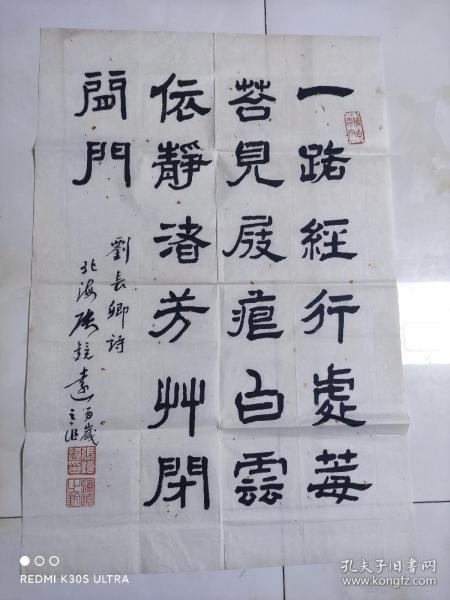 一路經行處莓
苔見屐痕白雲
依靜渚芳艸閉
閒門
劉長卿詩
北海
REDMI K30S ULTRA
孔夫子旧书网
www.kongfz.com